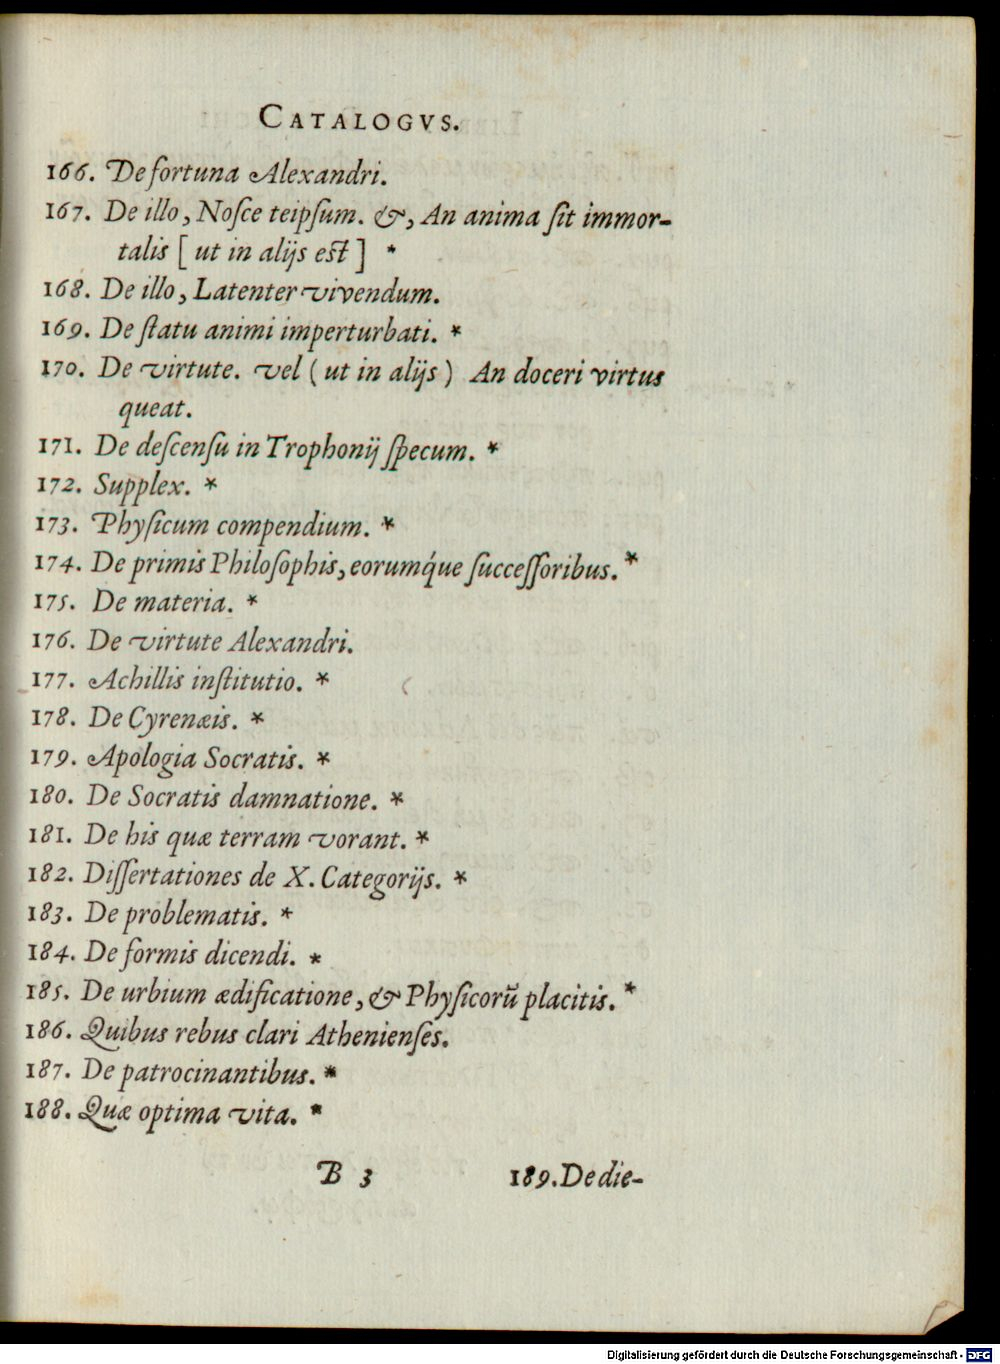 CATALOGVS.
166. De fortuna Alexandri.
167. De illo, Noſce teipſum. &, An anima ſit immor-
talis [ ut in alijs eſt ] *
168. De illo, Latenter vivendum.
169. De ſtatu animi imperturbati. *
170. De virtute. vel ( ut in alijs ) An doceri virtus
queat.
171. De deſcenſu in Trophonij ſpecum. *
172. Supplex. *
173. Phyſicum compendium. *
174. De primis Philoſophis, eorumq́ue ſucceſſoribus. *
175. De materia. *
176. De virtute Alexandri.
177. Achillis inſtitutio. *
178. De Cyrenæis. *
179. Apologia Socratis. *
180. De Socratis damnatione. *
181. De his quæ terram vorant. *
182. Diſſertationes de X. Categorijs. *
183. De problematis. *
184. De formis dicendi. *
185. De urbium ædificatione, & Phyſicorũ placitis. *
186. Quibus rebus clari Athenienſes.
187. De patrocinantibus. *
188. Quæ optima vita. *
B 3 189. De die-
Digitalisierung gefördert durch die Deutsche Forschungsgemeinschaft - DFG